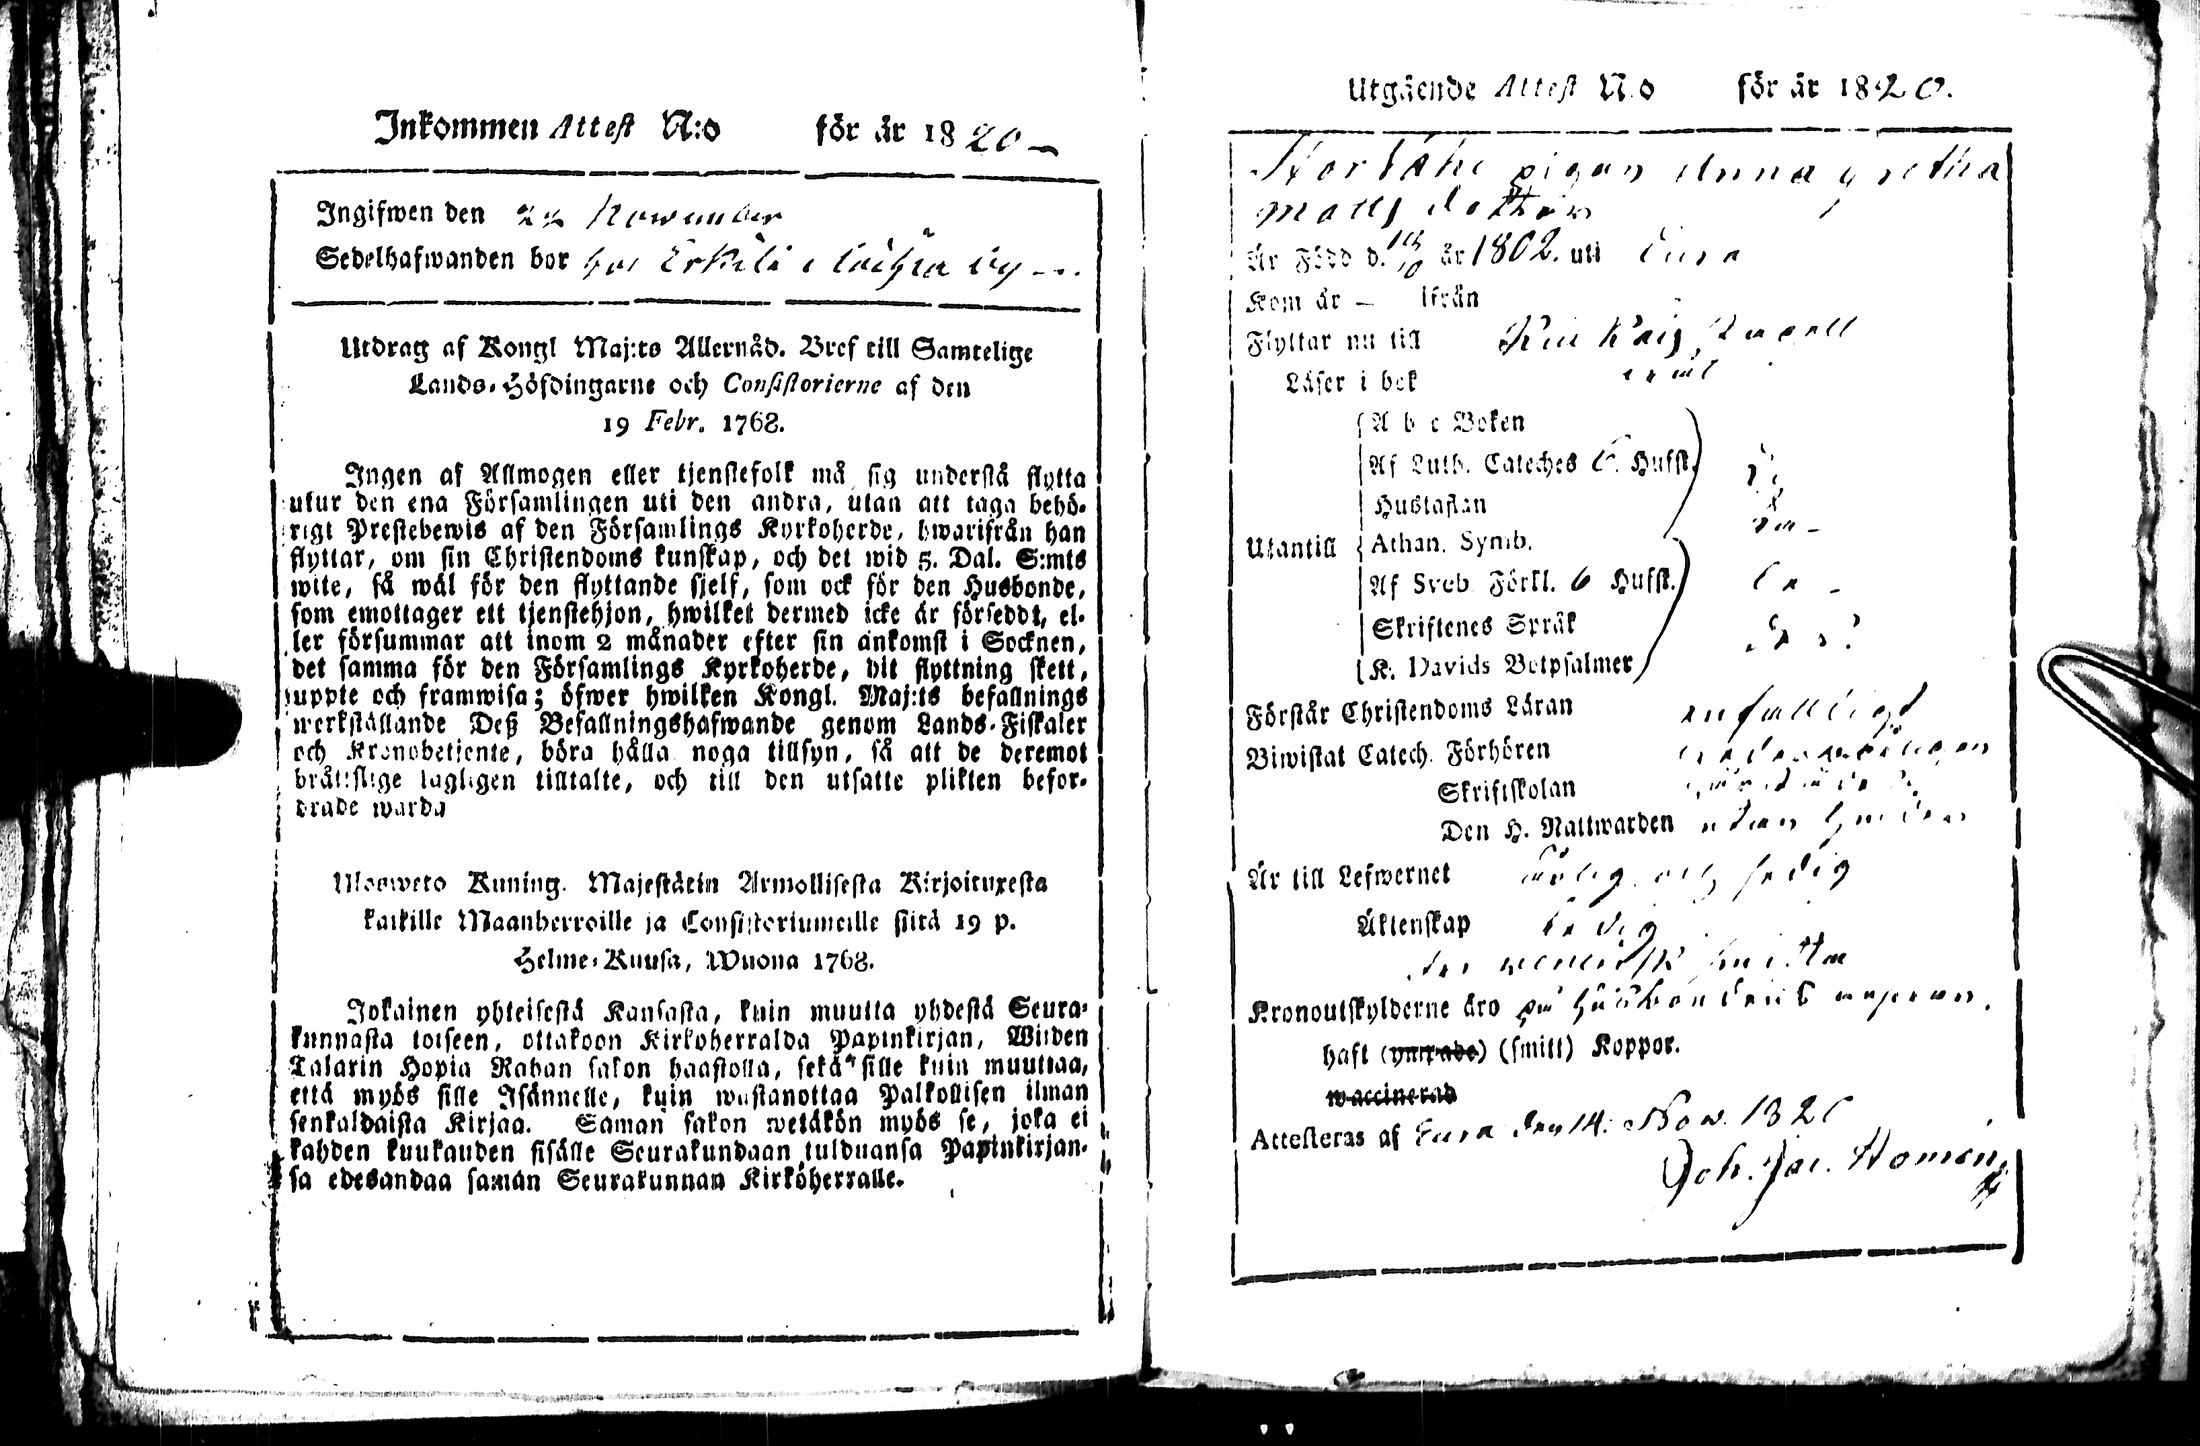 Inkommen Attest N:o för år 1820
Ingifwen den 22 November
Sedelhafwanden bor hos Erkilä i by
Utdrag af Kongl Maj:ts Allernåd. Bref till Samtelige
Lands-Höfdingarne och Consistorierne af den
19 Febr. 1768.
Ingen af Allmogen eller tjenstefolk må sig understå flytta
utur den ena Församlingen uti den andra, utan att taga behö-
rigt Prestebewis af den Församlings Kyrkoherde, hwarifrån han
flyttar, om sin Christendoms kunskap, och det wid 5. Dal. S:mts
wite, så wäl för den flyttande sjelf, som ock för den Husbonde,
som emottager ett tjenstehjon, hwilket dermed icke är försedt, el-
ler försummar att inom 2 månader efter sin ankomst i Socknen,
det samma för den Församlings Kyrkoherde, dit flyttning skett,
uppte och framwisa; öfwer hwilken Kongl. Maj:ts befallnings
werkställande Deß Befallningshafwande genom Lands-Fiskaler
och Kronobetjente, böra hålla noga tillsyn, så att de deremot
bråttslige lagligen tilltalte, och till den utsatte plikten befor-
drade warda
Ulosweto Kuning. Majestätin Armollisesta Kirjoituxesta
kaikille Maanherroille ja Consistoriumeille siitä 19 p.
Helme-Kuusa, Wuona 1768.
Jokainen yhteisestä Kansasta, kuin muutta yhdestä Seura-
kunnasta toiseen, ottakoon Kirkoherralda Papinkirjan, Wiiden
Talarin Hopia Rahan sakon haastolla, sekä sille kuin muuttaa,
että myös sille Isännelle, kuin wastanottaa Palkollisen ilman
senkaldaista Kirjaa. Saman sakon wetäkön myös se, joka ei
kahden kuukauden sisälle Seurakundaan tulduansa Papinkirjan-
sa edesandaa saman Seurakunnan Kirköherralle.
Utgående Attest N:o för år 1820.
pigan Anna Gretha
Matts dotter
Är Född d. år 1802. uti Eura
Kom år – ifrån
Flyttar nu till
Läser i bok
A b c Boken
Af Luth. Cateches 6. Hufst.
Hustaflan
Utantill Athan. Symb.
Af Sveb Förkl. 6 Hufst.
Skriftenes Språk
K. Davids Botpsalmer
Förstår Christendoms Läran enfalligt
Biwistat Catech. Förhören
Skriftskolan
Den H. Nattwarden utan hinder
Är till Lefwernet ärlig och sedig
Äktenskap ledig
venerisk smitta
Kronoutskylderne äro på husbondens ansvar.
haft (ympade) (smitt) Koppor.
waccinerad
Attesteras af Eura den 14. Nov. 1820
Joh. Jac.